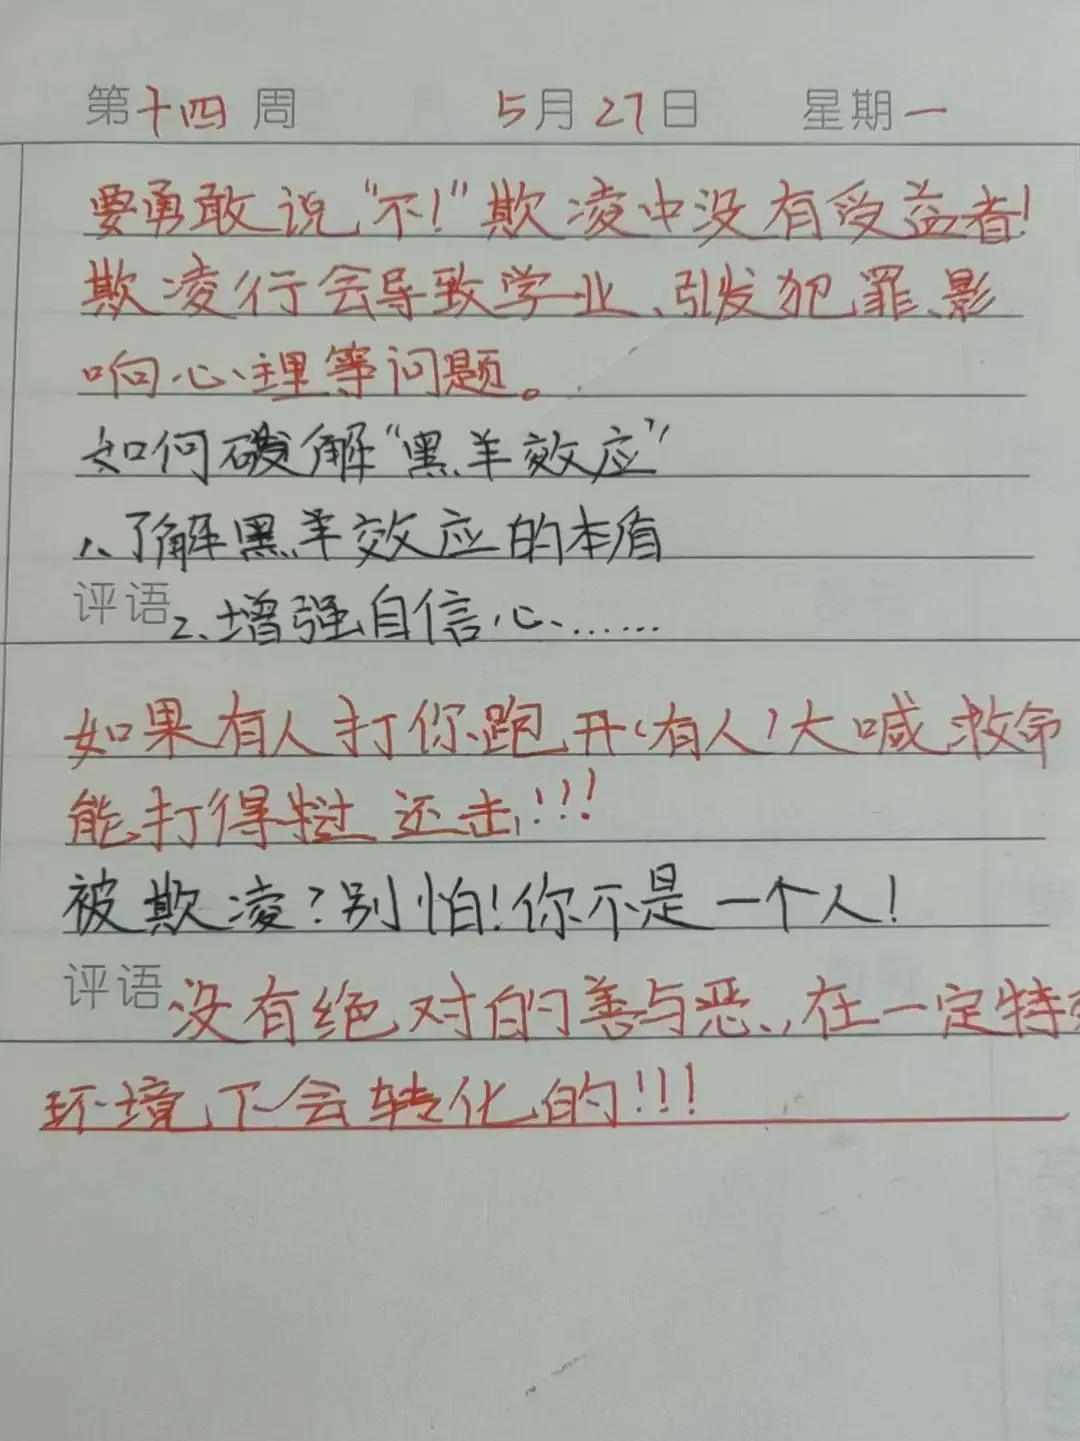 第十四周 5月27日 星期一
要勇敢说“不!”欺凌中没有受益者!
欺凌行会导致学业、引发犯罪、影
响心理等问题。
如何破解“黑羊效应”
1、了解黑羊效应的本盾
评语2、增强自信心、……
如果有人打你跑开(有人)大喊救命
能打得 还击!!!
被欺凌?别怕!你不是一个人!
评语 没有绝对的善与恶、,在一定特
环境下会转化的!!!